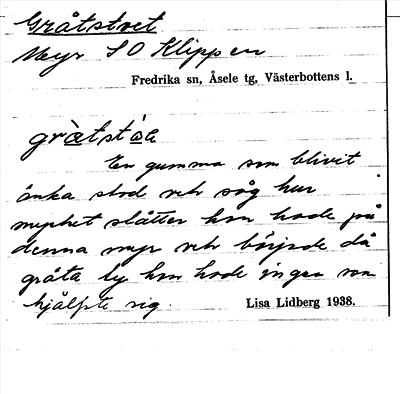 Gråtstret
Myr S O Klippen
Fredrika sn, Åsele tg, Västerbottens l.
En gumma som blivit
änka stod och såg hur
mycket slåtter hon hade på
denna myr och började då
gråta ty hon hade ingen som
hjälpte sig. Lisa Lidberg 1938.